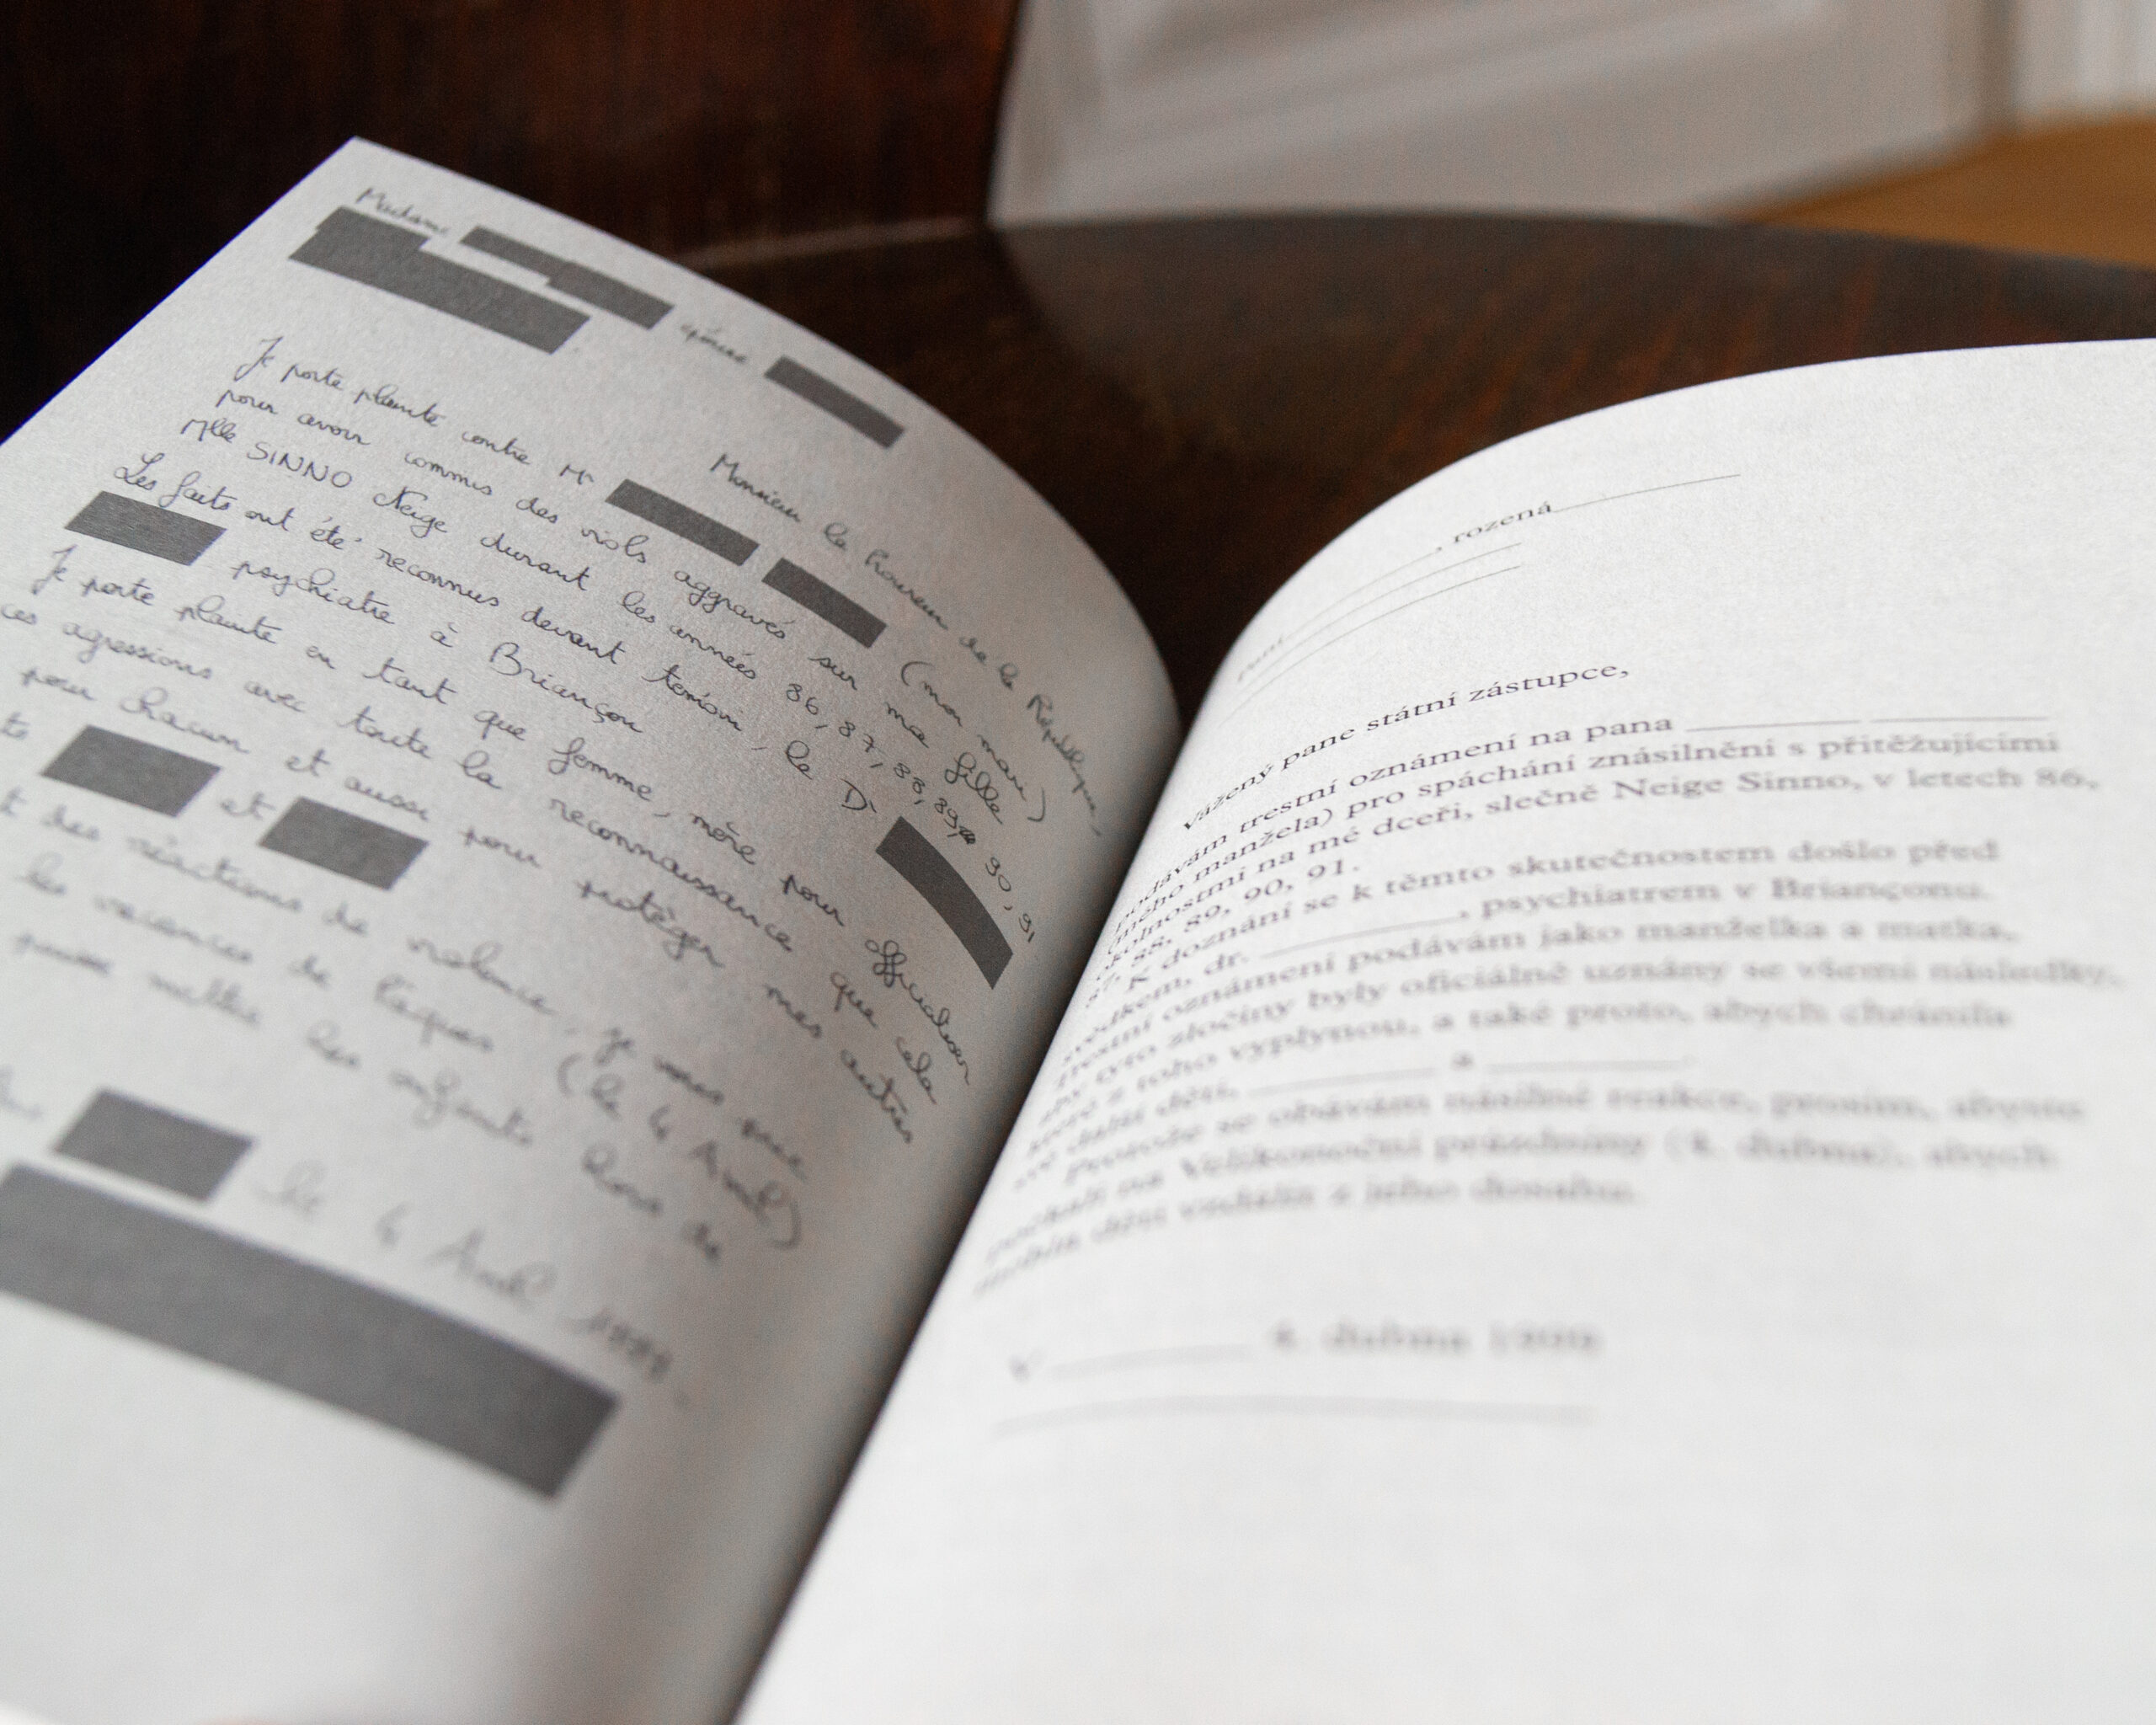 Madame épouse
Monsieur le Procureur de la République,
Je porte plainte contre Mr (mon mari)
pour avoir commis des viols aggravés sur ma fille
Mlle SINNO Neige durant les années 86, 87, 88, 89, 90, 91
Les faits ont été reconnus devant témoin, le Dr
psychiatre à Briançon
Je porte plainte en tant que femme, mère pour officialiser
ces agressions avec toute la reconnaissance que cela
pour chacun et aussi pour protéger mes autres
et
des réactions de violence, je vous prie
les vacances de Pâques (le 4 Avril)
puisse mettre les enfants hors de
le 4 Avril
, rozená
Paní
Vážený pane státní zástupce,
podávám trestní oznámení na pana
(mého manžela) pro spáchání znásilnění s přitěžujícími
okolnostmi na mé dceři, slečně Neige Sinno, v letech 86,
87, 88, 89, 90, 91.
K doznání se k těmto skutečnostem došlo před
svědkem, dr. , psychiatrem v Briançonu.
Trestní oznámení podávám jako manželka a matka,
aby tyto zločiny byly oficiálně uznány se všemi následky,
které z toho vyplynou, a také proto, abych chránila
své další děti, a
Protože se obávám násilné reakce, prosím, abyste
počkali na Velikonoční prázdniny (4. dubna), abych
mohla děti vzdálit z jeho dosahu.
V 4. dubna